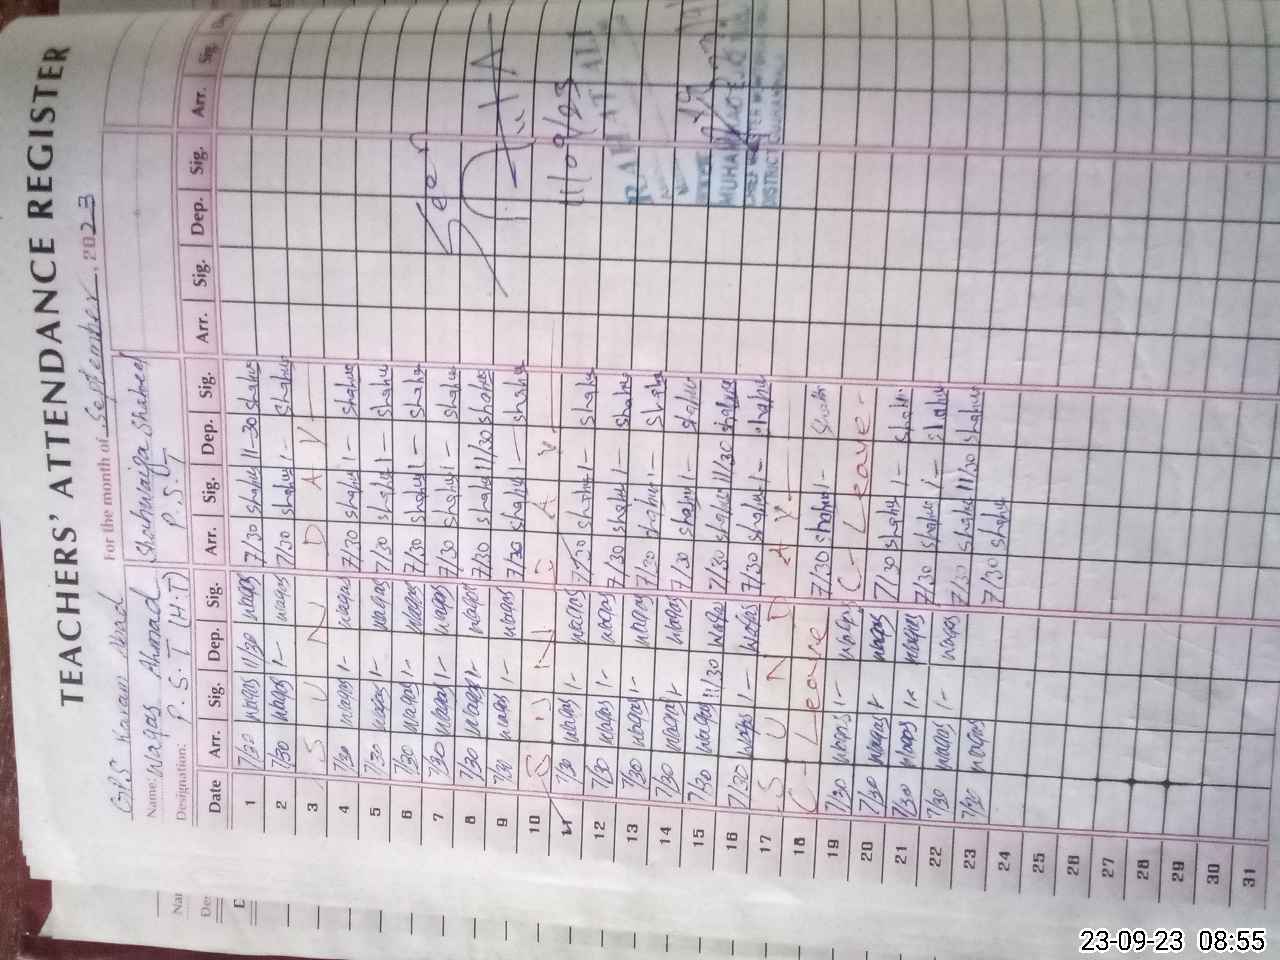 TEACHERS' ATTENDANCE REGISTER
For the month of September, 2023
Name: Waqas Ahmad
Designation: P.S.T (H.T) P.S.T
Date Arr. Sig. Dep. Sig. Arr. Sig. Dep. Sig. Arr. Sig. Dep. Sig. Arr. Sig.
1 7/30 waqas 11/30 waqas 7/30 shahu 11-30 shahu
2 7/30 waqas 1- waqas 7/30 shahu 1- shahu
3 SUNDAY
4 7/30 waqas 1- waqas 7/30 shahu 1- shahu
5 7/30 waqas 1- waqas 7/30 shahu 1- shahu
6 7/30 waqas 1- waqas 7/30 shahu 1- shahu
7 7/30 waqas 1- waqas 7/30 shahu 1- shahu
8 7/30 waqas 1- waqas 7/30 shahu 11/30 shahu
9 7/30 waqas 1- waqas 7/30 shahu 1- shahu
10 SUNDAY
11 7/30 waqas 1- waqas 7/30 shahu 1- shahu
12 7/30 waqas 1- waqas 7/30 shahu 1- shahu
13 7/30 waqas 1- waqas 7/30 shahu 1- shahu
14 7/30 waqas 1- waqas 7/30 shahu 1- shahu
15 7/30 waqas 11/30 waqas 7/30 shahu 11/30 shahu
16 7/30 waqas 1- waqas 7/30 shahu 1- shahu
17 SUNDAY
18 C-Leave 7/30 shahu 1- shahu
19 7/30 waqas 1- waqas C-Leave-
20 7/30 waqas 1- waqas 7/30 shahu 1- shahu
21 7/30 waqas 1- waqas 7/30 shahu 1- shahu
22 7/30 waqas 1- waqas 7/30 shahu 11/30 shahu
23 7/30 waqas 7/30 shahu
24
25
26
27
28
29
30
31
Seen
11/09/23
23-09-23 08:55